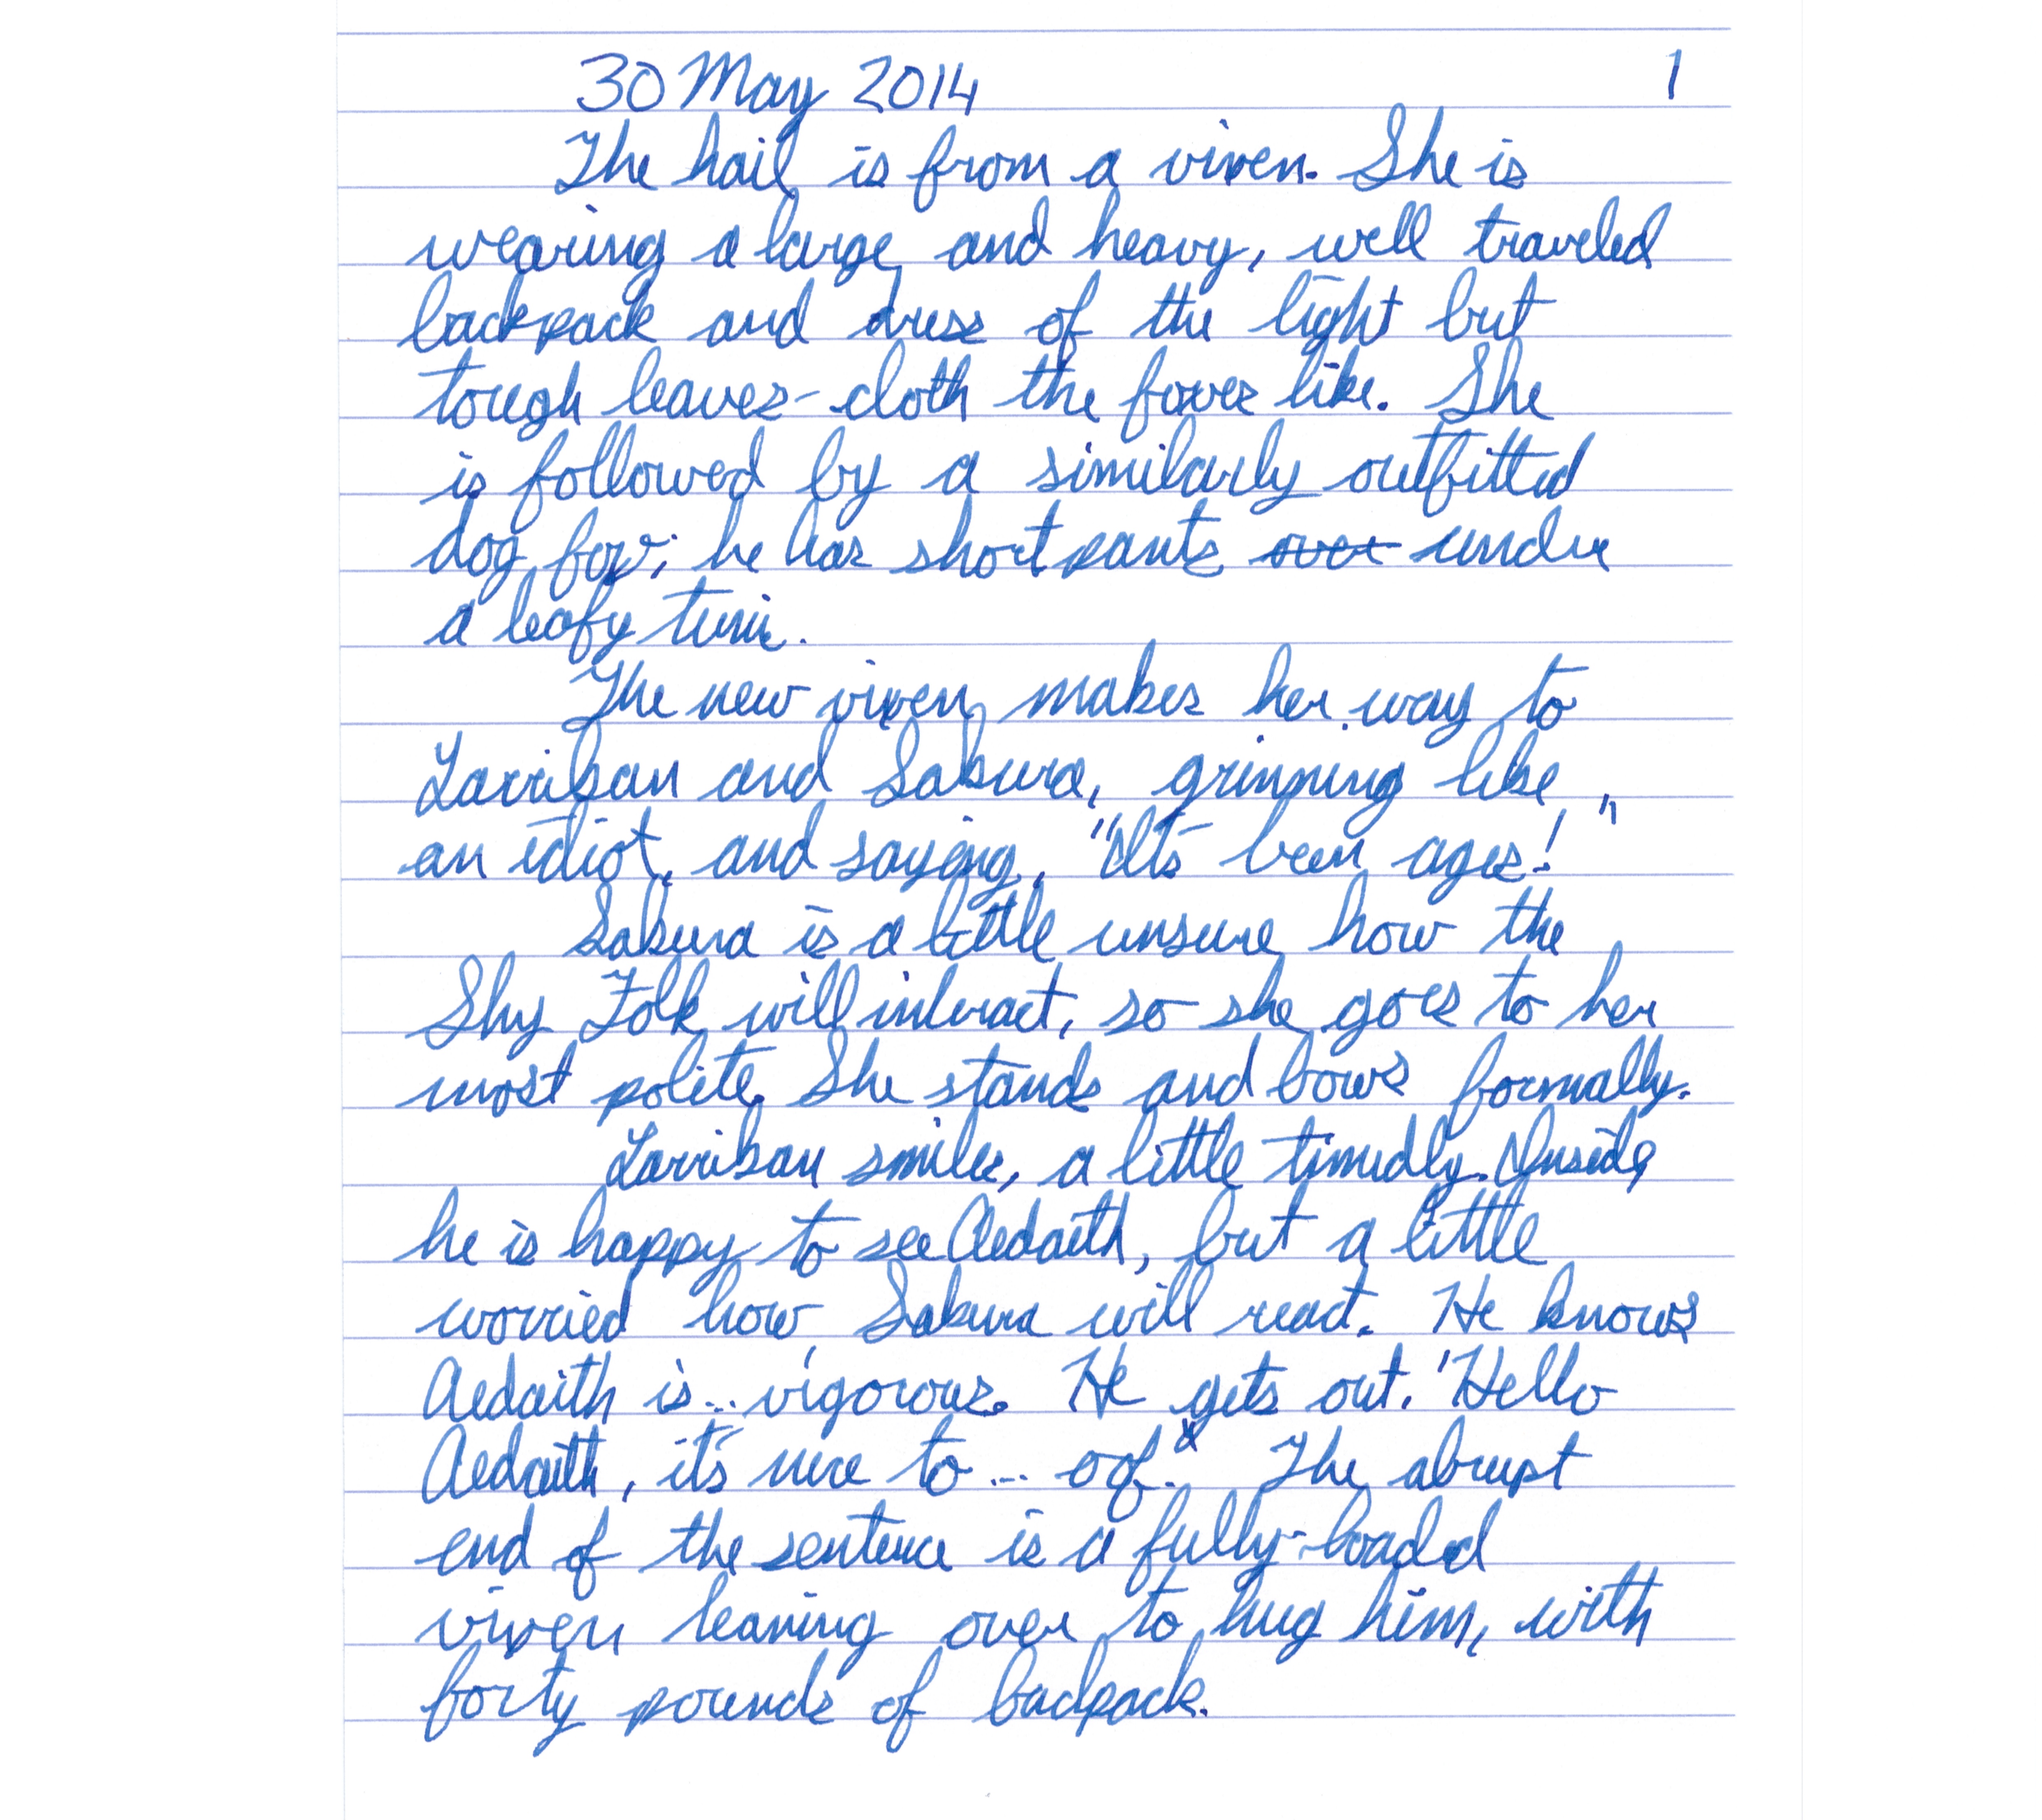 30 May 2014 1
The hail is from a vixen. She is
wearing a large and heavy, well traveled
backpack and dress of the light but
tough leaves-cloth the foxes like. She
is followed by a similarly outfitted
dog fox; he has short pants over under
a leafy tunic.
The new vixen makes her way to
Larriban and Sakura, grinning like
an idiot, and saying, "It's been ages!"
Sakura is a little unsure how the
Shy Folk will interact, so she goes to her
most polite. She stands and bows formally.
Larriban smiles, a little timidly. Inside,
he is happy to see Aedaith, but a little
worried how Sakura will react. He knows
Aedaith is... vigorous. He gets out, "Hello
Aedaith, it's nice to... oof." The abrupt
end of the sentence is a fully-loaded
vixen leaning over to hug him, with
forty pounds of backpack.